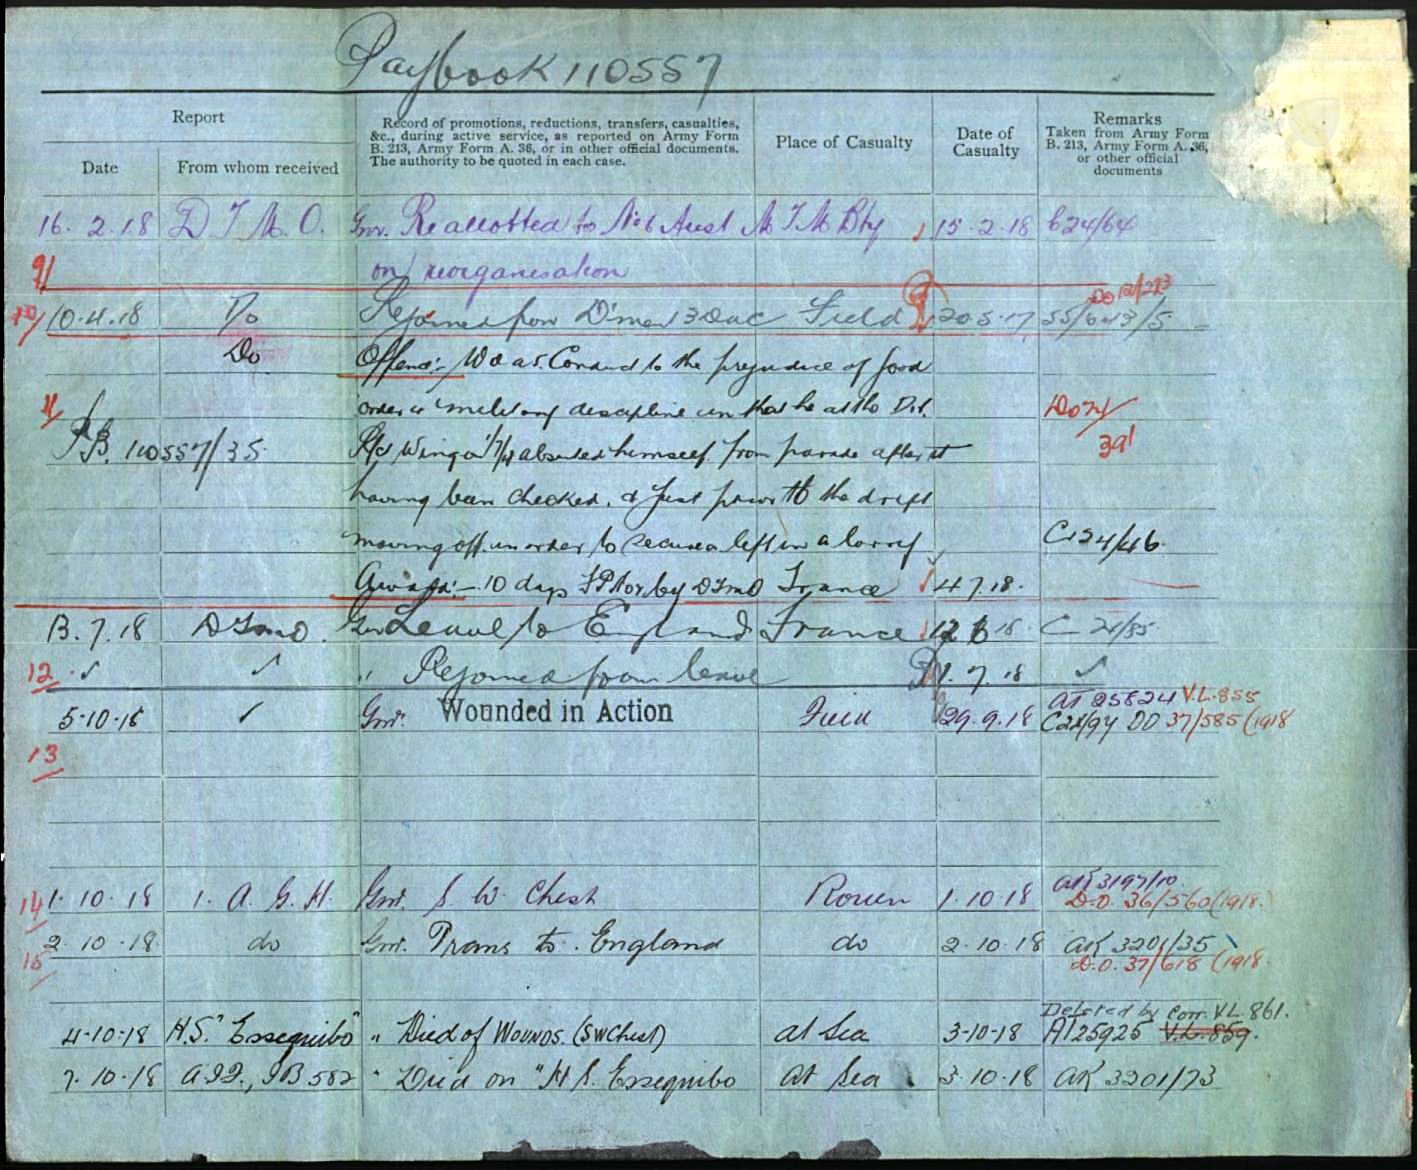 Paybook 110557
Report
Date
From whom received
Record of promotions, reductions, transfers, casualties,
&c., during active service, as reported on Army Form
B. 213, Army Form A. 36, or in other official documents.
The authority to be quoted in each case.
Place of Casualty
Date of
Casualty
Remarks
Taken from Army Form
B. 213, Army Form A. 36,
or other official
documents
16. 2. 18 D T M O. Gnr. Reallotted to No 6 Aust M T M Bty 15. 2. 18 C24/64
on reorganisation
9/
10.4.18 Do Rejoined from Field 20.5.17
Do Offence:- WOAS. Conduct to the prejudice of good
order & military discipline in that he at the
11/
39/
P.B. 110557/35 absented himself from parade after it
having been checked, & just prior to the draft
moving off in order to secure a lift in a lorry
C24/46
Award:- 10 days by DTMO France 4.7.18.
13.7.18 DTMO. Gnr Leave to England France C 24/85
12 ✓ ✓ " Rejoined from leave 7.18 ✓
5-10-18 ✓ Gnr. Wounded in Action Field 29.9.18 AT 25824 V.L. 855
C24/94 DO 37/585 (1918
13
14 1. 10. 18 1. A. G. H. Gnr. S. W. Chest Rouen 1.10.18 AK 3197/10
D.O. 36/560 (1918.)
2. 10. 18. do Gnr. Trans to. England do 2.10.18 AK 3201/35
15 D.O. 37/618 (1918.
Deleted by Corr. V.L. 861.
4-10-18 H.S. "Essequibo" " Died of Wounds. (SW Chest) at Sea 3-10-18 AT25925 V.L. 859.
7.10.18 " Died on "H S. Essequibo At Sea 3.10.18 AK 3201/73